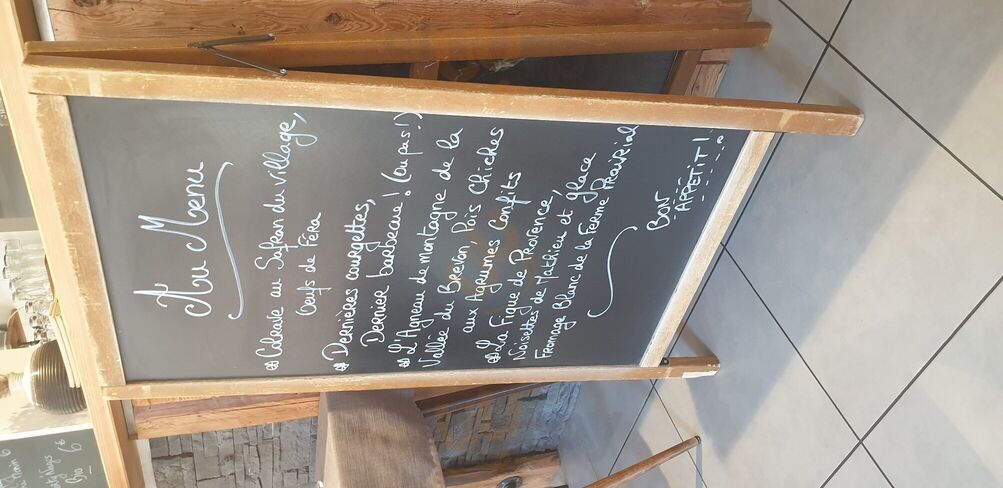 Au Menu
Célerave au Safran du village,
Œufs de Féra
Dernières courgettes,
Dernier barbecue ! (ou pas !)
L'Agneau de montagne de la
Vallée du Brevon, Pois Chiches
aux Agrumes Confits
La Figue de Provence,
Noisettes de Mathieu et glace
Fromage Blanc de la Ferme Prairial
BON
APPETIT !
6
6€
Bio